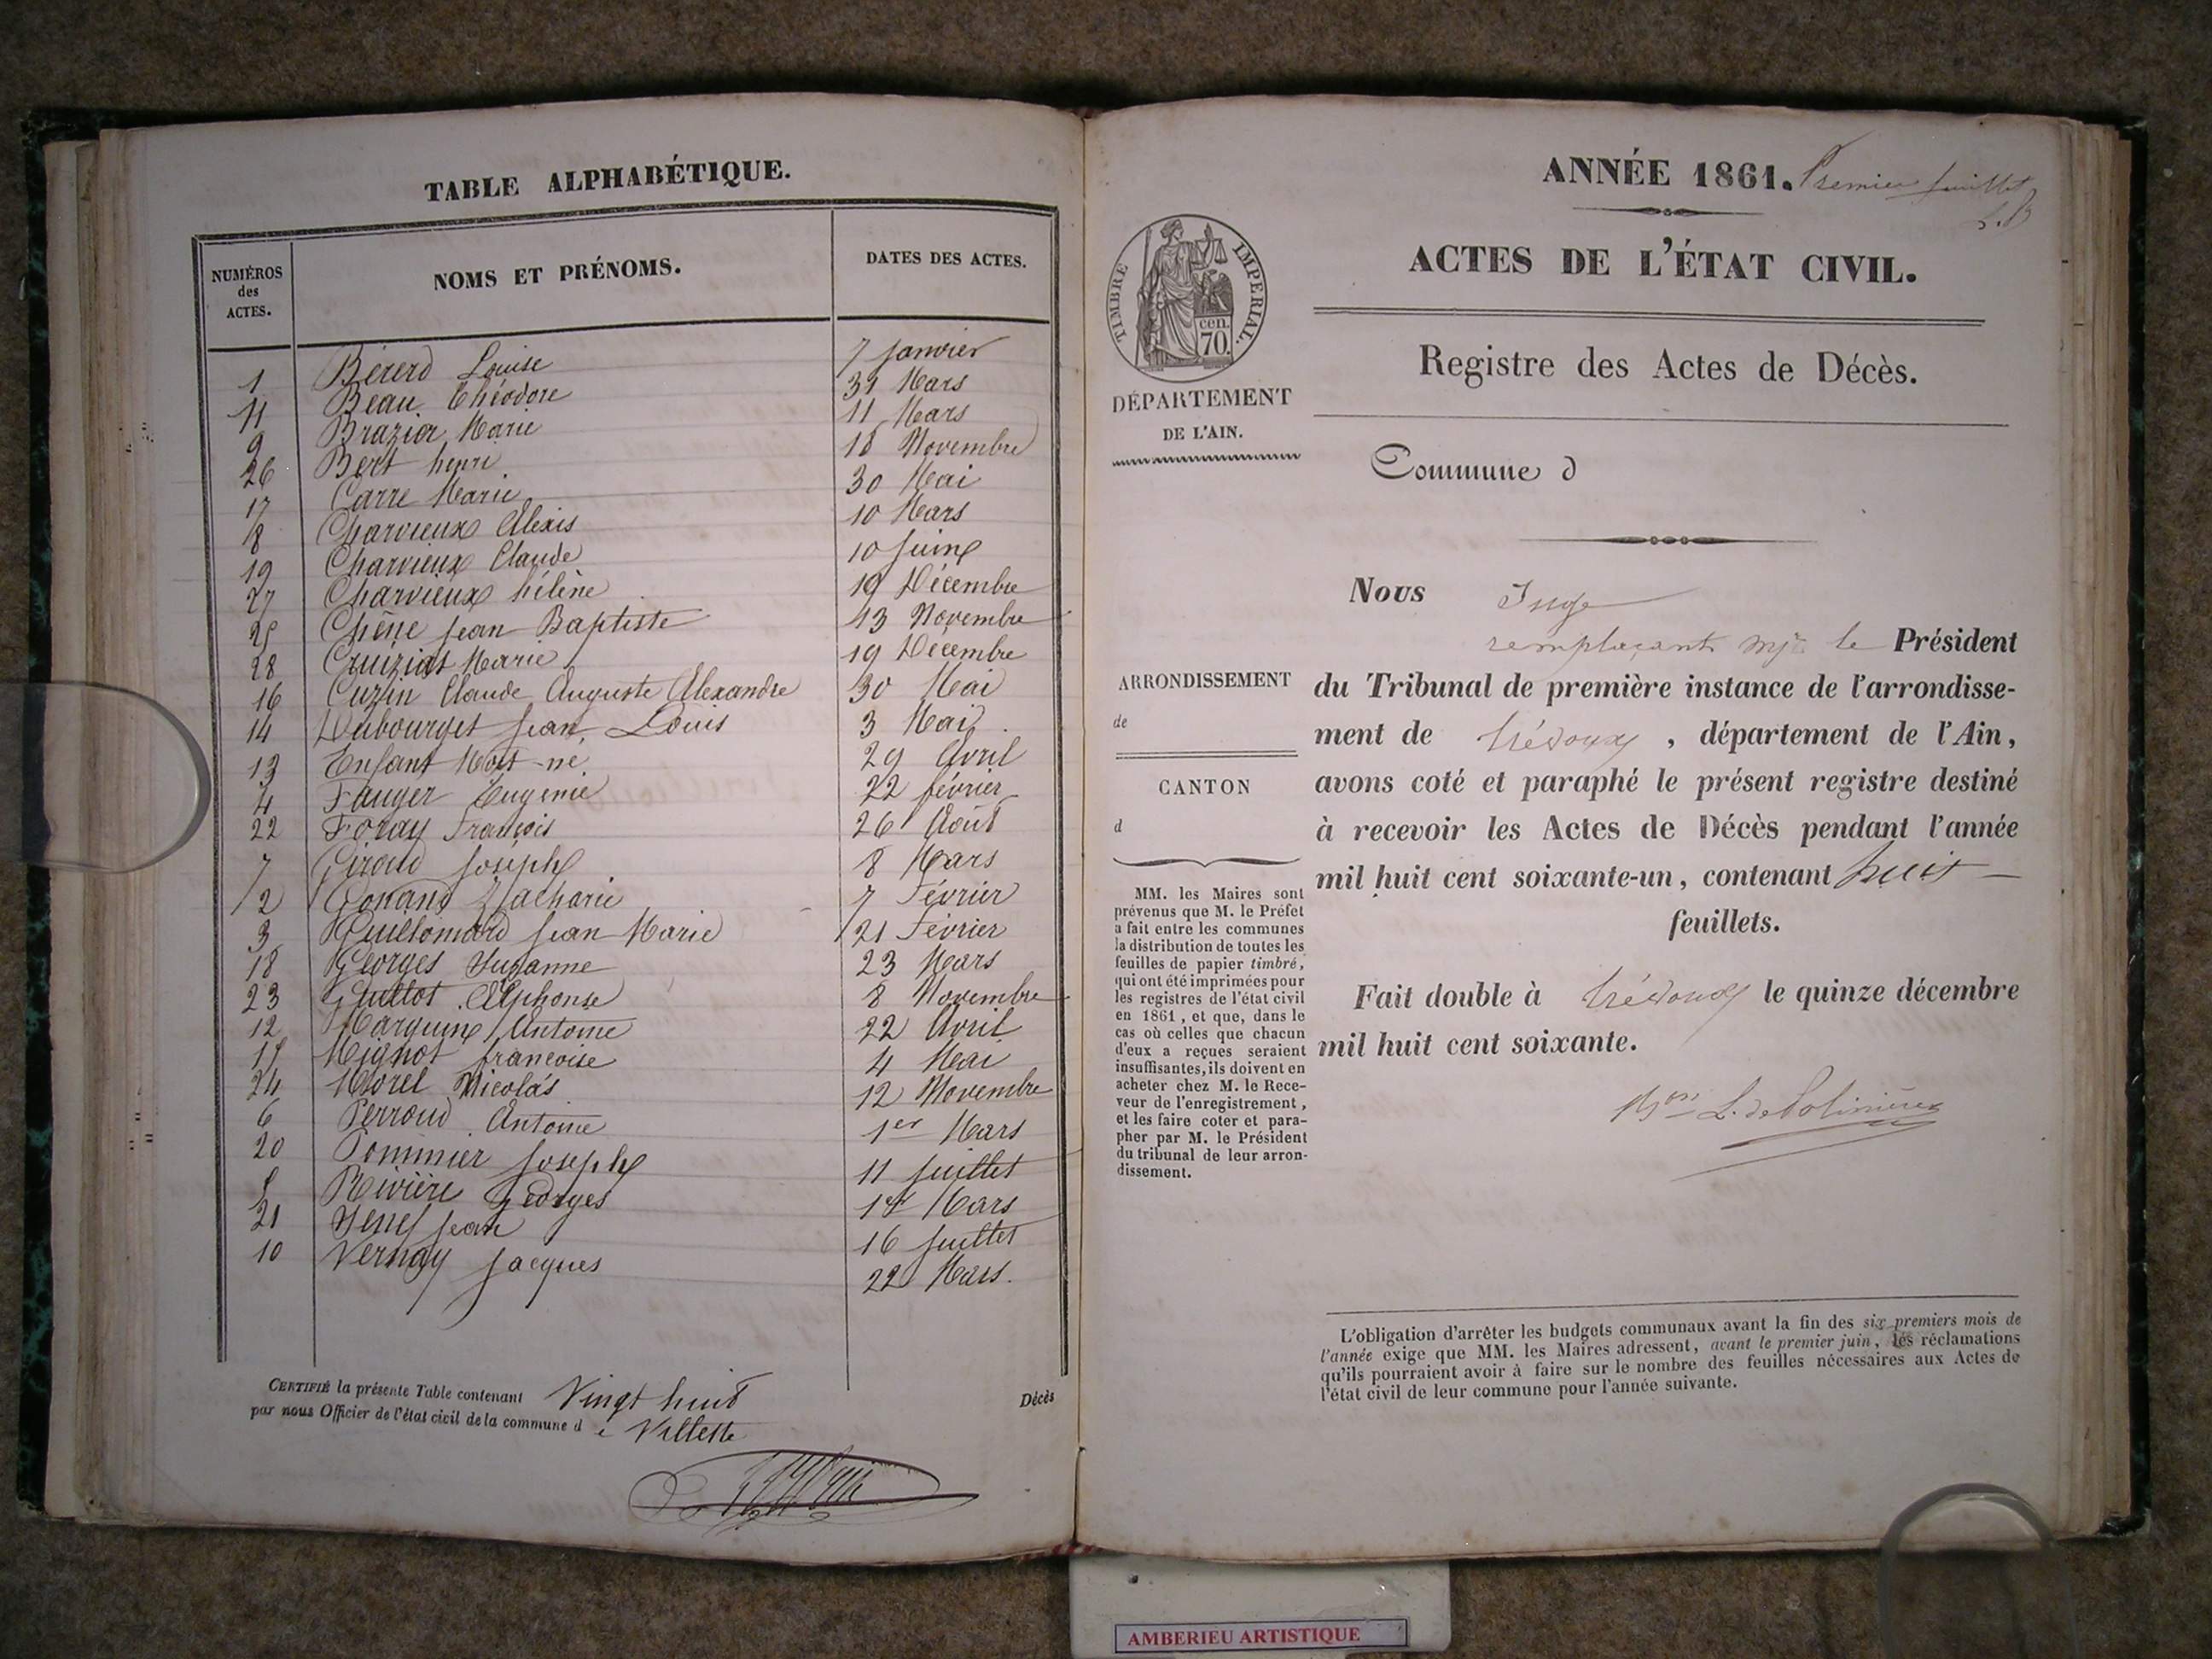 TABLE ALPHABÉTIQUE.
NUMÉROS des ACTES. NOMS ET PRÉNOMS. DATES DES ACTES.
1 Bererd Louise 7 janvier
11 Beau Théodore 31 Mars
9 Brazier Marie 11 Mars
26 Bert henri 18 Novembre
17 Carre Marie 30 Mai
8 Charvieux Alexis 10 Mars
19 Charvieux Claude 10 Juin
27 Charvieux hélène 19 Décembre
25 Chêne Jean Baptiste 13 Novembre
28 Cruiziat Marie 19 Décembre
16 Cuzin Claude Auguste Alexandre 30 Mai
14 Dubourget Jean Louis 3 Mai
13 Enfant Mort-né 29 Avril
4 Fauger Eugenie 22 février
22 Foray François 26 Août
7 Giroud Joseph 8 Mars
2 Gonand Zacharie 7 Février
3 Guillomard Jean Marie 21 Février
18 Georges Suzanne 23 Mars
23 Guillot Alphonse 8 Novembre
12 Marguin Antoine 22 Avril
15 Mignot françoise 4 Mai
24 Morel Nicolas 12 Novembre
6 Perroud Antoine 1er Mars
20 Pommier Joseph 11 juillet
5 Rivière Georges 1er Mars
21 Jean 16 juillet
10 Vernay Jacques 22 Mars.
CERTIFIÉ la présente Table contenant Vingt huit Décès
par nous Officier de l'état civil de la commune d e Villette
ANNÉE 1861. Premier feuillet
ACTES DE L'ÉTAT CIVIL.
TIMBRE IMPÉRIAL.
cen.
70.
Registre des Actes de Décès.
DÉPARTEMENT
DE L'AIN.
Commune d
Nous Juge
remplaçant Mr le Président
du Tribunal de première instance de l'arrondisse-
ment de Trévoux , département de l'Ain,
avons coté et paraphé le présent registre destiné
à recevoir les Actes de Décès pendant l'année
mil huit cent soixante-un, contenant huit
feuillets.
Fait double à Trévoux le quinze décembre
mil huit cent soixante.
L. de Polinière
ARRONDISSEMENT
de
CANTON
d
MM. les Maires sont
prévenus que M. le Préfet
a fait entre les communes
la distribution de toutes les
feuilles de papier timbré,
qui ont été imprimées pour
les registres de l'état civil
en 1861, et que, dans le
cas où celles que chacun
d'eux a reçues seraient
insuffisantes, ils doivent en
acheter chez M. le Rece-
veur de l'enregistrement,
et les faire coter et para-
pher par M. le Président
du tribunal de leur arron-
dissement.
L'obligation d'arrêter les budgets communaux avant la fin des six premiers mois de
l'année exige que MM. les Maires adressent, avant le premier juin, les réclamations
qu'ils pourraient avoir à faire sur le nombre des feuilles nécessaires aux Actes de
l'état civil de leur commune pour l'année suivante.
AMBERIEU ARTISTIQUE